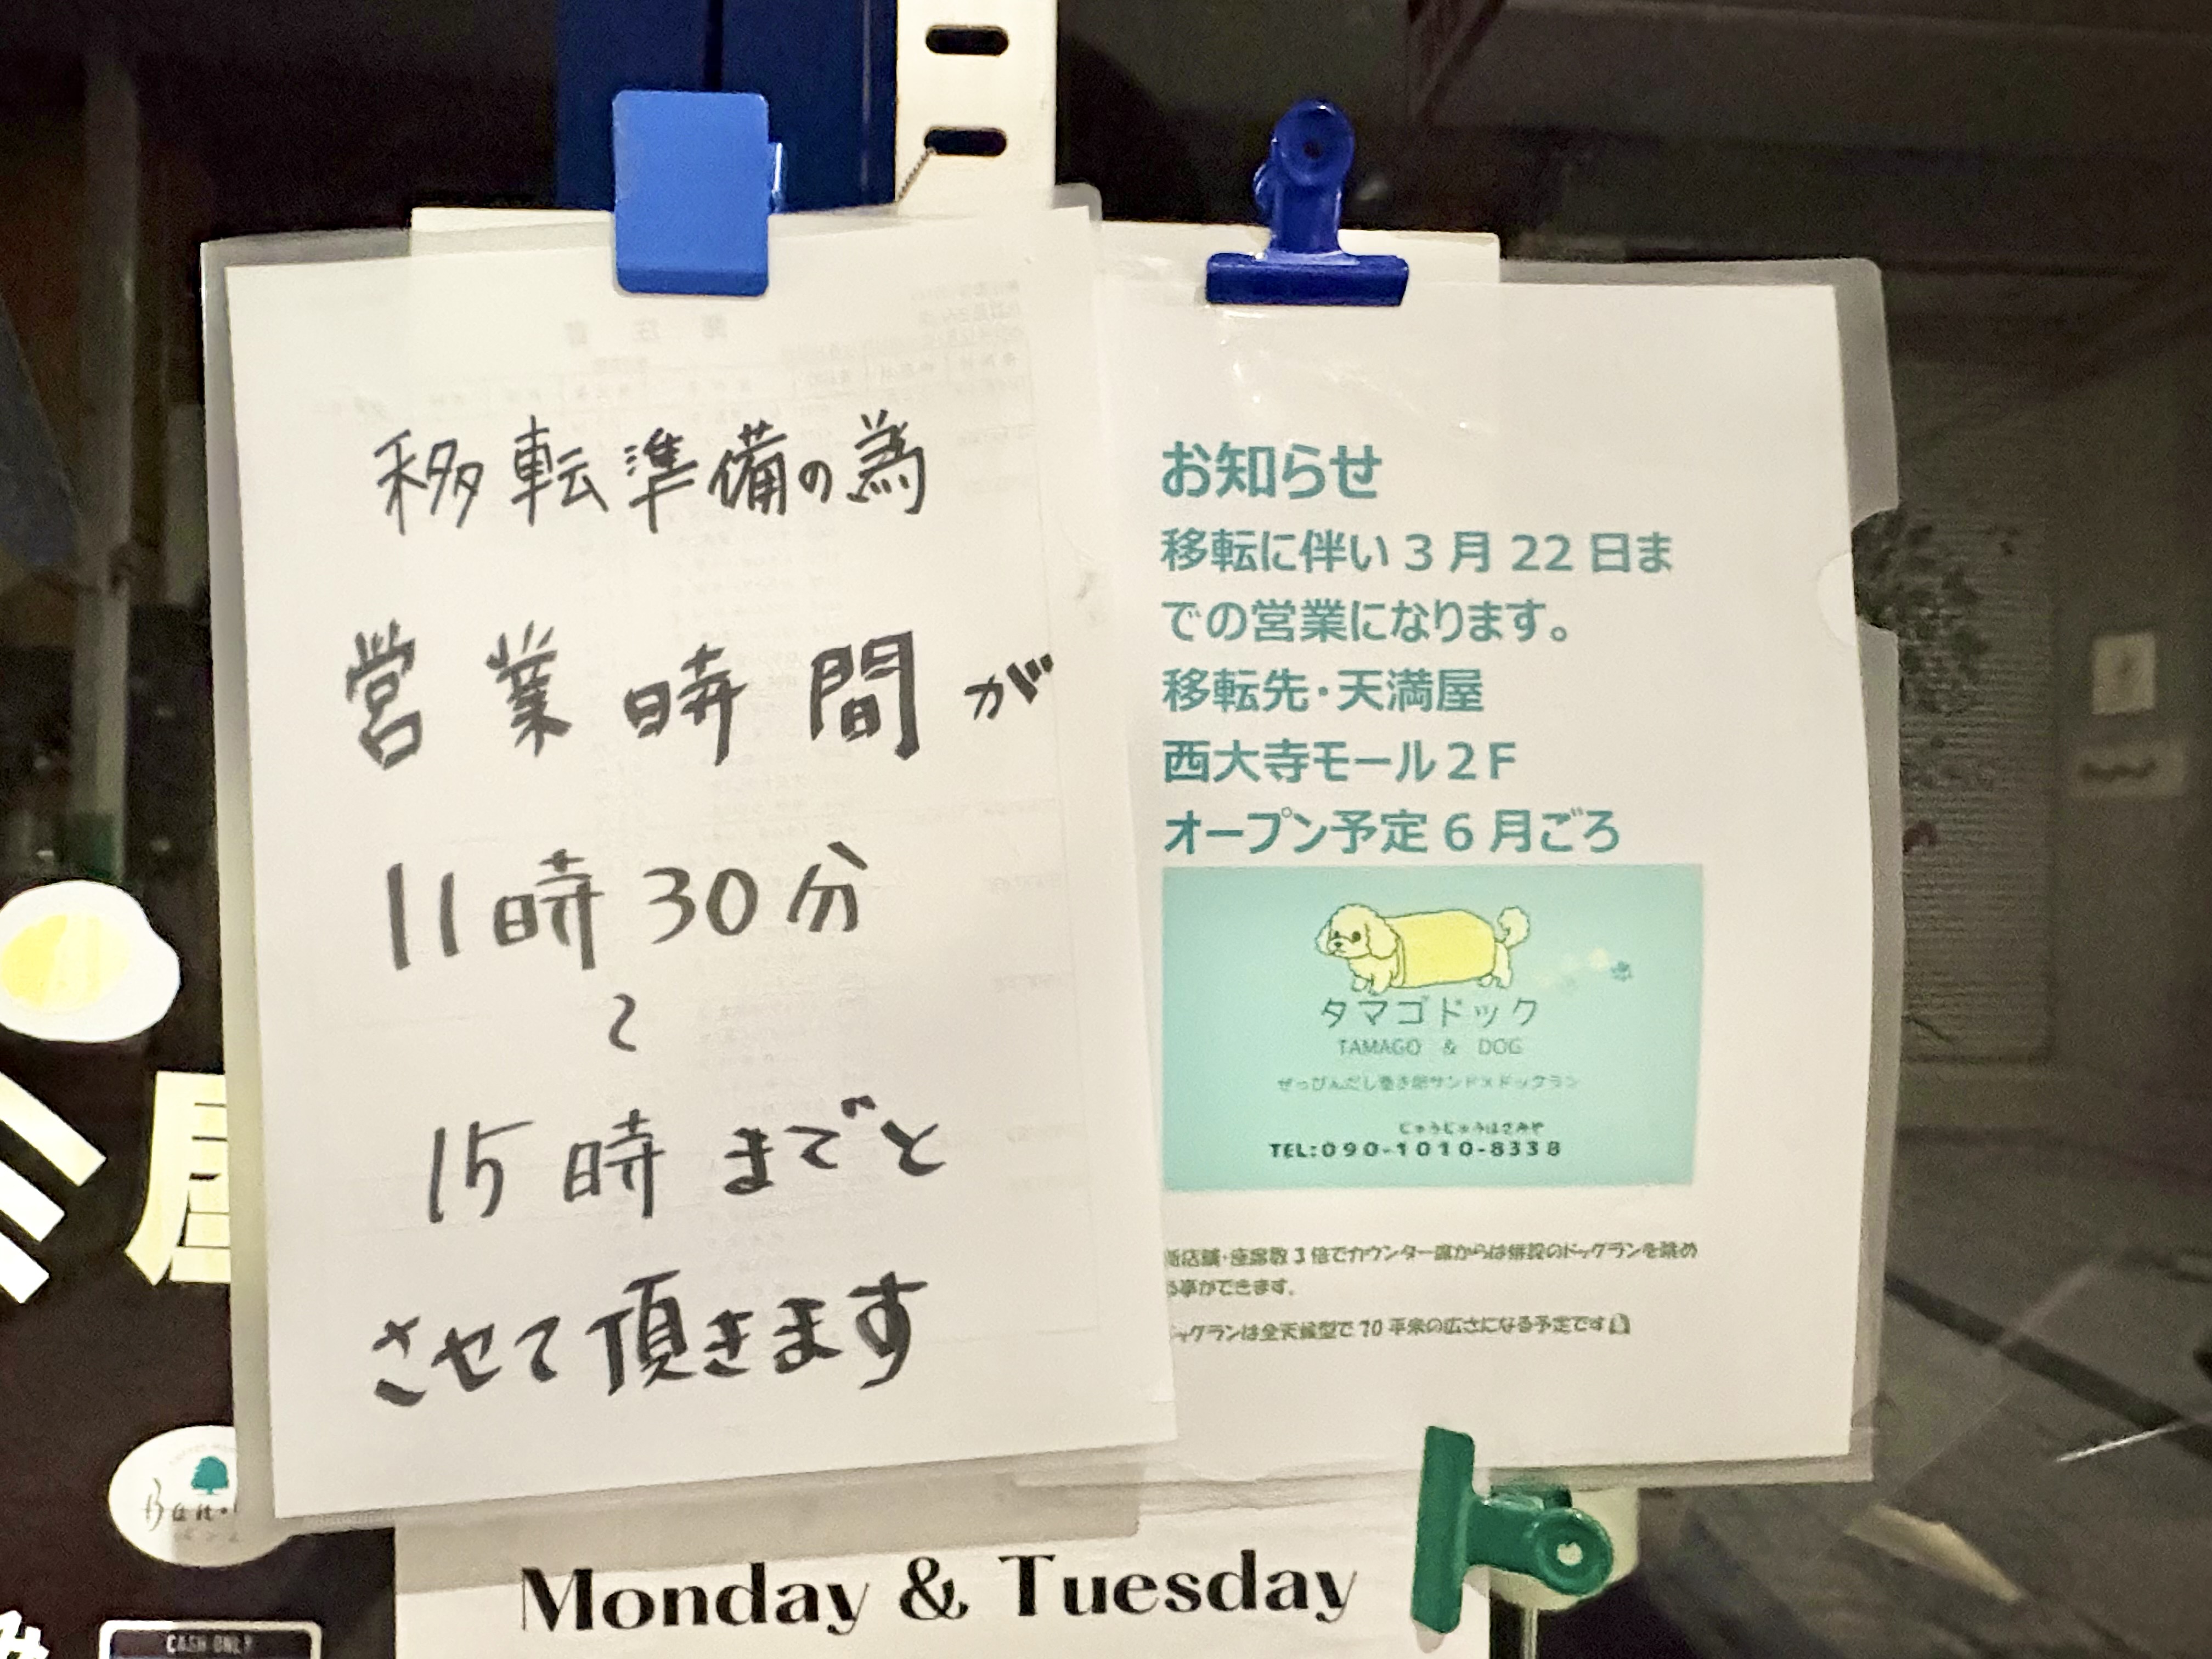 移転準備の為
営業時間が
11時30分
〜
15時までと
させて頂きます
お知らせ
移転に伴い3月22日ま
での営業になります。
移転先・天満屋
西大寺モール2F
オープン予定6月ごろ
タマゴドック
TAMAGO & DOG
ぜっぴんだし巻き卵サンド×ドックラン
じゅうじゅうはさみや
TEL:090-1010-8338
新店舗・座席数3倍でカウンター席からは併設のドッグランを眺め
る事ができます。
ッグランは全天候型で70平米の広さになる予定です
Monday & Tuesday
屋
Ban
CASH ONLY
み